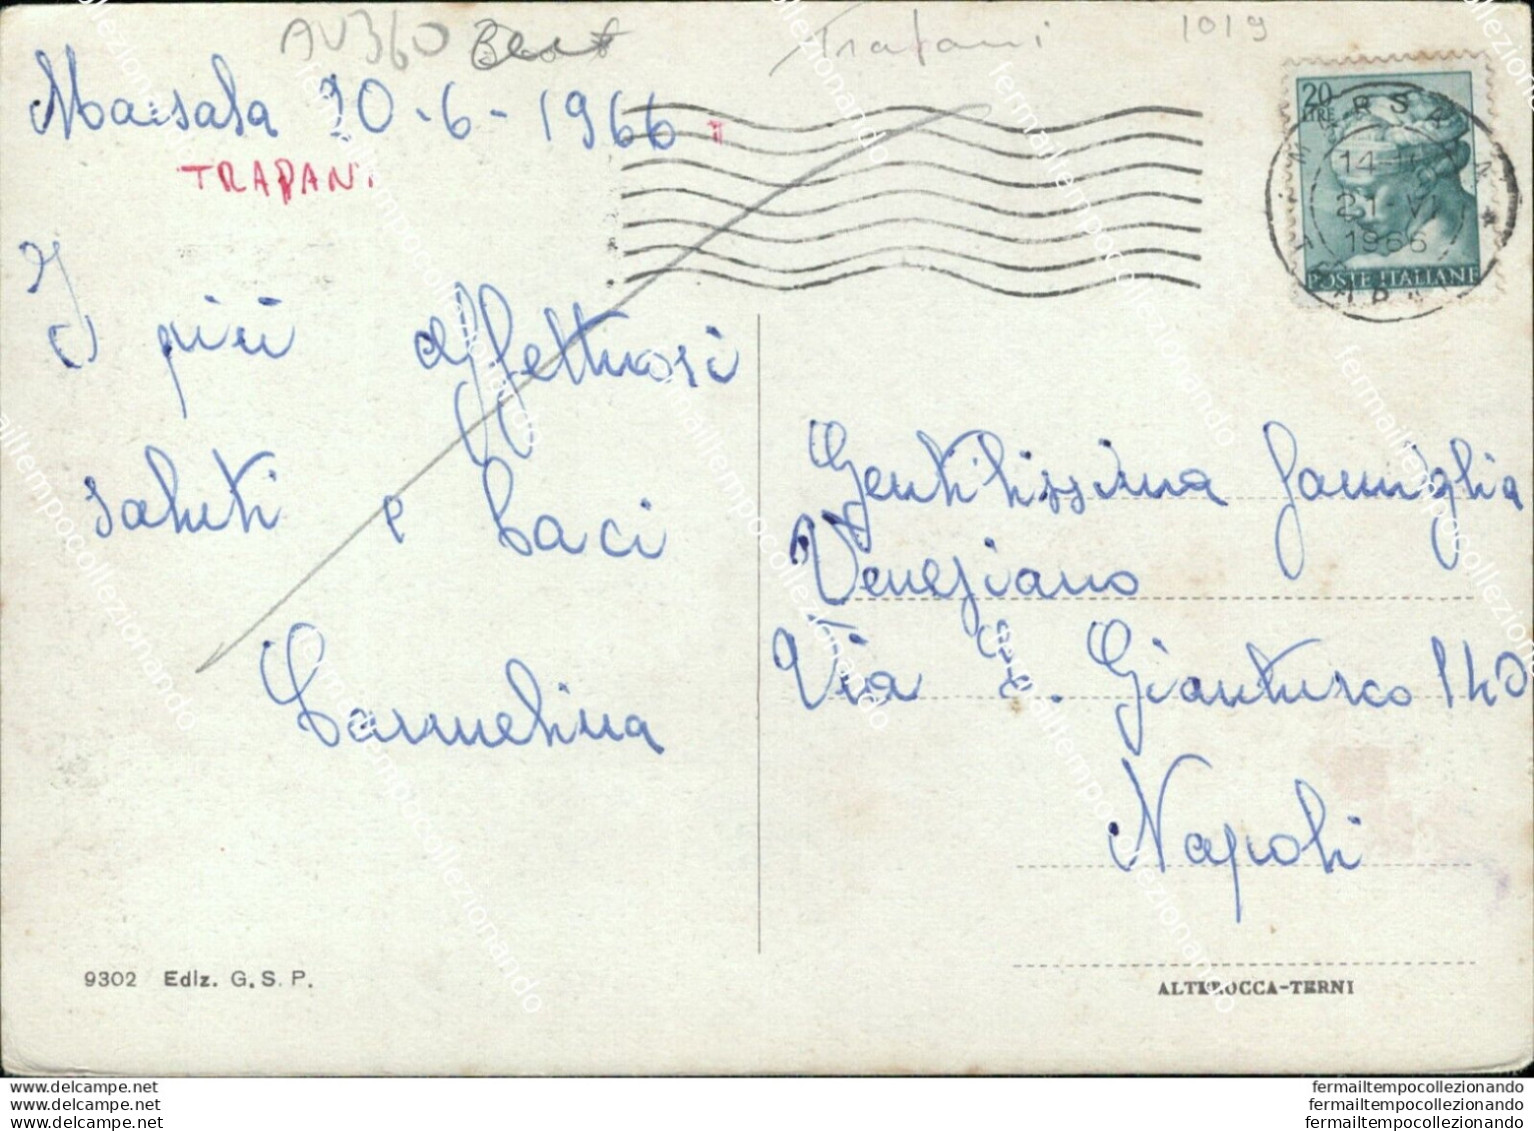 AV360
Trapani
1019
Marsala 20-6-1966
TRAPANI
I più affettuosi
saluti e baci
Carmelina
20
LIRE
MARSALA
14-
21-VI
1966
POSTE ITALIANE
Gentilissima famiglia
Veneziano
Via E. Gianturco 140
Napoli
9302 Ediz. G.S.P.
ALTEROCCA-TERNI
www.delcampe.net
www.delcampe.net
www.delcampe.net
fermailtempocollezionando
fermailtempocollezionando
fermailtempocollezionando